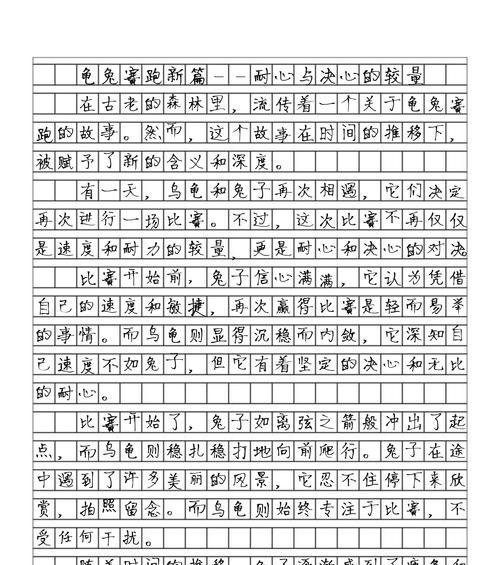 龟兔赛跑新篇--耐心与决心的较量
在古老的森林里，流传着一个关于龟兔赛
跑的故事。然而，这个故事在时间的推移下，
被赋予了新的含义和深度。
有一天，乌龟和兔子再次相遇，它们决定
再次进行一场比赛。不过，这次比赛不再仅仅
是速度和耐力的较量，更是耐心和决心的对决。
比赛开始前，兔子信心满满，它认为凭借
自己的速度和敏捷，再次赢得比赛是轻而易举
的事情。而乌龟则显得沉稳而内敛，它深知自
己速度不如兔子，但它有着坚定的决心和无比
的耐心。
比赛开始了，兔子如离弦之箭般冲出了起
点，而乌龟则稳扎稳打地向前爬行。兔子在途
中遇到了许多美丽的风景，它忍不住停下来欣
赏，拍照留念。而乌龟则始终专注于比赛，不
受任何干扰。
随着时间的推移，兔子逐渐感到了疲